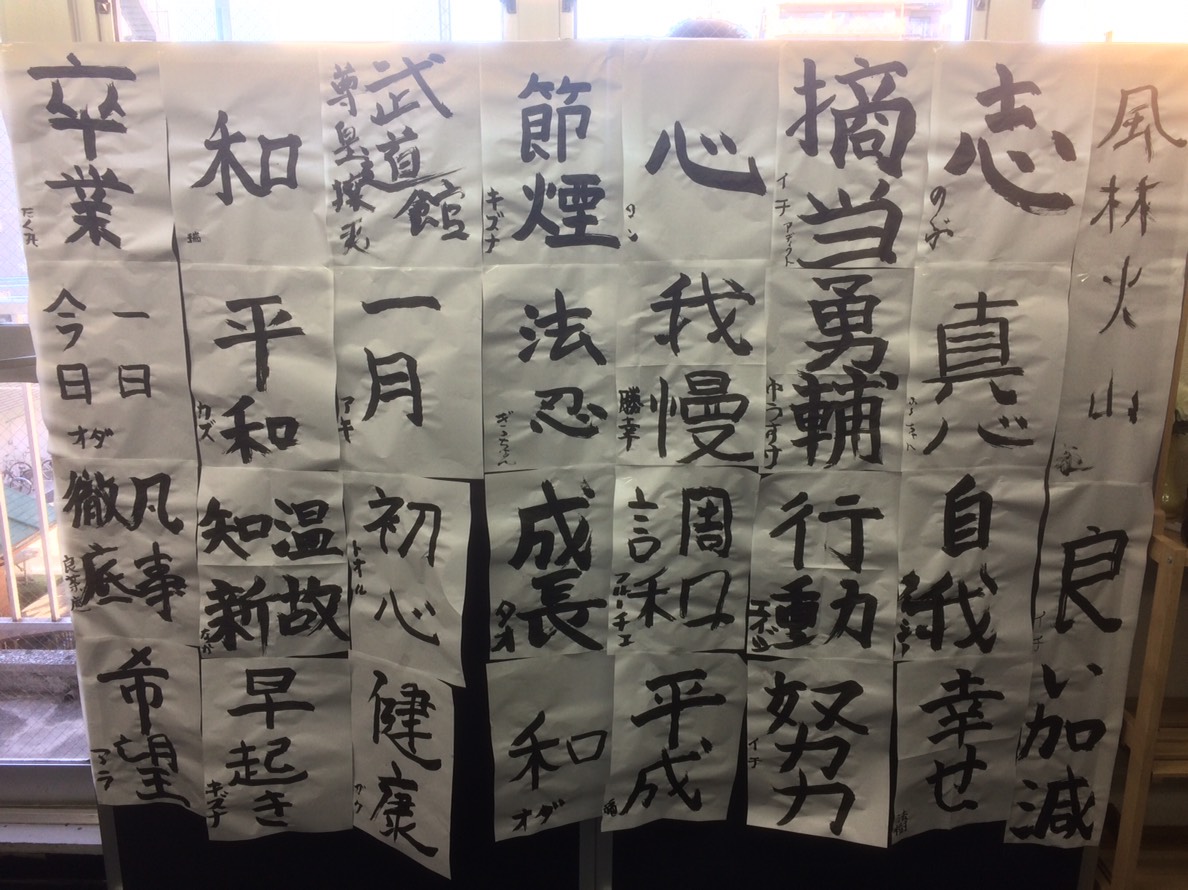 風林火山
志
のぶ
摘当
イチ
アディクト
心
タン
節煙
キズナ
武道館
尊皇攘夷
和
瑞
卒業
たく九
真心
勇輔
ゆうすけ
我慢
勝幸
法忍
ぎっちゃん
一月
アキ
平和
カズ
一日
今日
オダ
良い加減
イチ
自我
行動
調和
フルーチェ
成長
タオ
初心
トオル
温故
知新
凡事
徹底
幸せ
努力
イチ
平成
和
オダ
健康
ガク
早起き
キズナ
希望
アラ